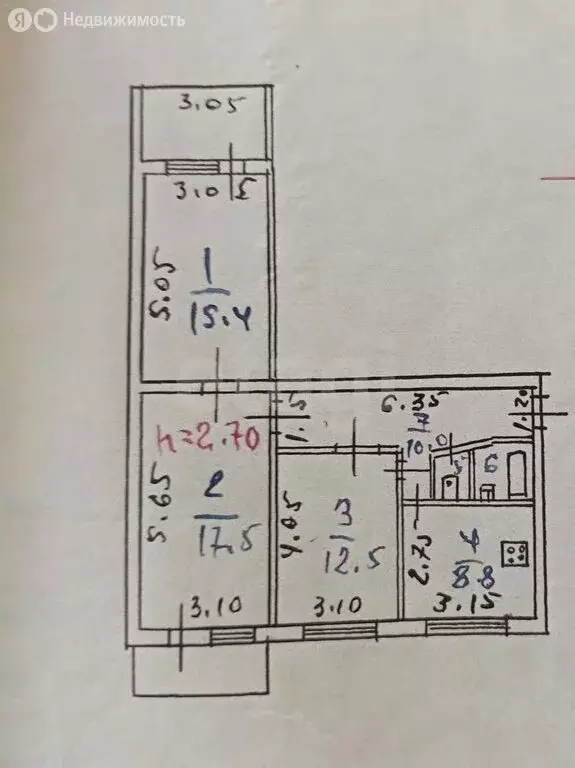 Я Недвижимость
3.05
3.0
5.05
1
15.4
6.35
1.20
7
10
h=2.70
5.65
2
17.5
4.05
3
12.5
5
6
2.75
4
8.8
3.10
3.10
3.15